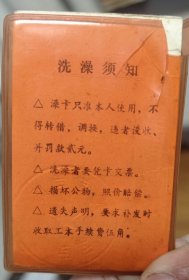 洗澡须知
△ 澡卡只准本人使用，不
得转借，调换，违者没收，
并罚款贰元。
△ 洗澡者要凭卡交票。
△ 损坏公物，照价赔偿。
△ 遗失声明，要求补发时
收取工本手续费伍角。